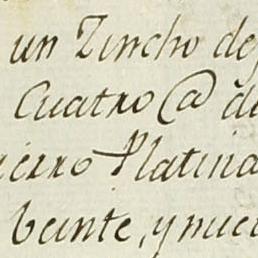 un Zincho de
Cuatro @ de
ierro Platina
beinte, y nue